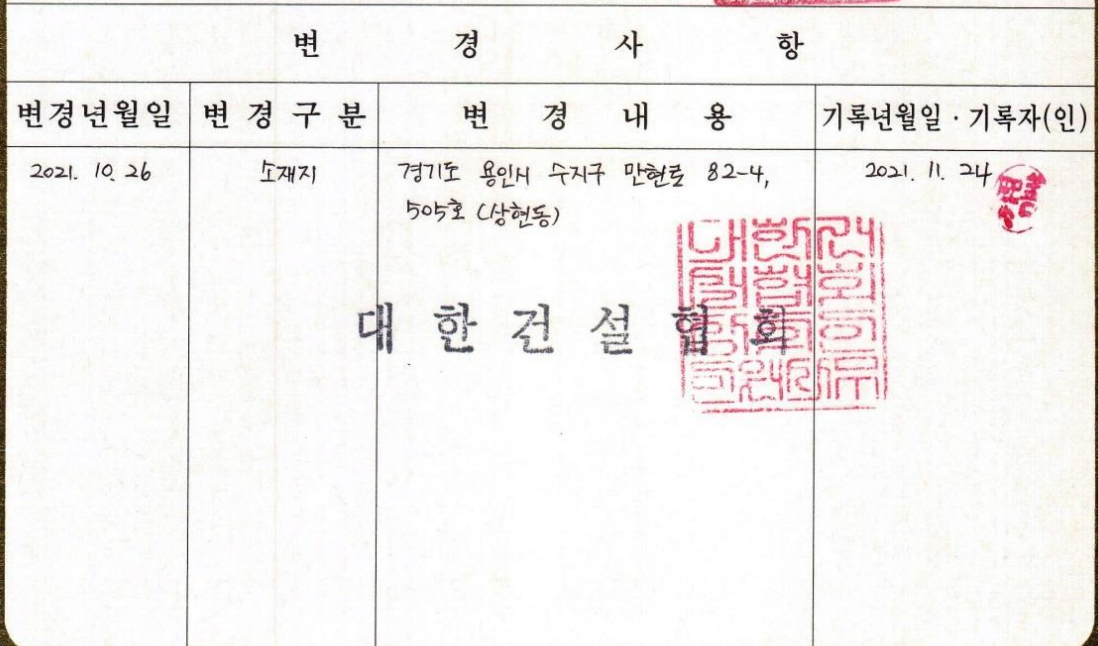 변 경 사 항
변경년월일 변경구분 변경내용 기록년월일·기록자(인)
2021. 10. 26 소재지 경기도 용인시 수지구 만현로 82-4, 2021. 11. 24
505호 (상현동)
대한건설협회